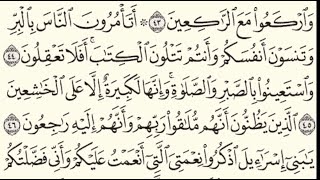 وَٱرْكَعُوا۟ مَعَ ٱلرَّٰكِعِينَ ٤٣ ۞ أَتَأْمُرُونَ ٱلنَّاسَ بِٱلْبِرِّ
وَتَنسَوْنَ أَنفُسَكُمْ وَأَنتُمْ تَتْلُونَ ٱلْكِتَٰبَ ۚ أَفَلَا تَعْقِلُونَ ٤٤
وَٱسْتَعِينُوا۟ بِٱلصَّبْرِ وَٱلصَّلَوٰةِ ۚ وَإِنَّهَا لَكَبِيرَةٌ إِلَّا عَلَى ٱلْخَٰشِعِينَ
٤٥ ٱلَّذِينَ يَظُنُّونَ أَنَّهُم مُّلَٰقُوا۟ رَبِّهِمْ وَأَنَّهُمْ إِلَيْهِ رَٰجِعُونَ ٤٦
يَٰبَنِىٓ إِسْرَٰٓءِيلَ ٱذْكُرُوا۟ نِعْمَتِىَ ٱلَّتِىٓ أَنْعَمْتُ عَلَيْكُمْ وَأَنِّى فَضَّلْتُكُمْ